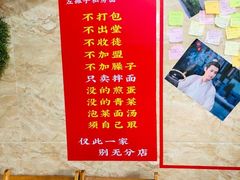 左撇子私房面
不打包
不出堂
不收徒
不加盟
不加臊子
只卖拌面
没的煎蛋
没的青菜
泡菜面汤
须自己取
仅此一家
别无分店